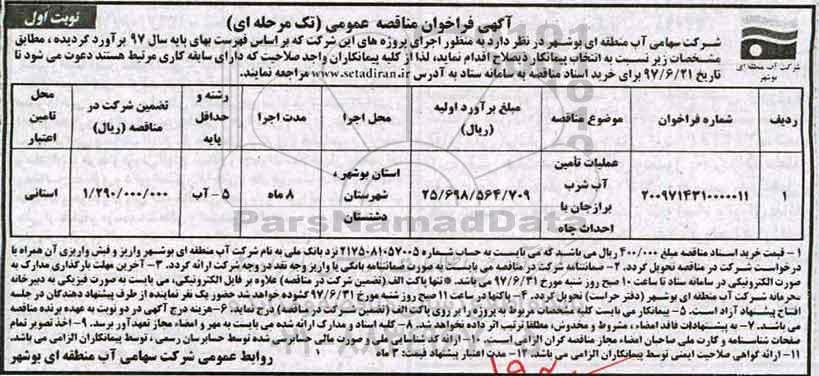 نوبت اول
آگهی فراخوان مناقصه عمومی (تک مرحله ای)
شرکت آب منطقه ای
بوشهر
شرکت سهامی آب منطقه ای بوشهر در نظر دارد به منظور اجرای پروژه های این شرکت که بر اساس فهرست بهای پایه سال ۹۷ برآورد گردیده ، مطابق
مشخصات زیر نسبت به انتخاب پیمانکار ذیصلاح اقدام نماید، لذا از کلیه پیمانکاران واجد صلاحیت که دارای سابقه کاری مرتبط هستند دعوت می شود تا
تاریخ ۹۷/۶/۲۱ برای خرید اسناد مناقصه به سامانه ستاد به آدرس www.setadiran.ir مراجعه نمایند.
ردیف
شماره فراخوان
موضوع مناقصه
مبلغ برآورد اولیه
(ریال)
محل اجرا
مدت اجرا
رشته و
حداقل
پایه
تضمین شرکت در
مناقصه (ریال)
محل
تامین
اعتبار
۱
۲۰۰۹۷۱۴۳۱۰۰۰۰۰۱۱
عملیات تامین
آب شرب
برازجان با
احداث چاه
۲۵/۶۹۸/۵۶۴/۷۰۹
استان بوشهر ،
شهرستان
دشتستان
۸ ماه
۵- آب
۱/۲۹۰/۰۰۰/۰۰۰
استانی
۱- قیمت خرید اسناد مناقصه مبلغ ۴۰۰/۰۰۰ ریال می باشد که می بایست به حساب شماره ۲۱۷۵۰۸۱۰۵۷۰۰۵ نزد بانک ملی به نام شرکت آب منطقه ای بوشهر واریز و فیش واریزی آن همراه با
درخواست شرکت در مناقصه تحویل گردد. ۲- ضمانتنامه شرکت در مناقصه می بایست به صورت ضمانتنامه بانکی یا واریز وجه نقد در وجه شرکت ارائه گردد. ۳- آخرین مهلت بارگذاری مدارک به
صورت الکترونیکی در سامانه ستاد تا ساعت ۱۰ صبح روز شنبه مورخ ۹۷/۶/۳۱ می باشد. تنها پاکت الف (تضمین شرکت در مناقصه) علاوه بر فایل الکترونیکی، می بایست به صورت فیزیکی به دبیرخانه
محرمانه شرکت آب منطقه ای بوشهر (دفتر حراست) تحویل گردد. ۴- پاکتها در ساعت ۱۱ صبح روز شنبه مورخ ۹۷/۶/۳۱ گشوده خواهد شد حضور یک نفر نماینده از طرف پیشنهاد دهندگان در جلسه
افتتاح پیشنهاد آزاد است. ۵- پیمانکار می بایست کلیه مشخصات مربوط به پروژه را بر روی پاکت الف (تضمین شرکت در مناقصه) درج نماید. ۶- هزینه درج آگهی در دو نوبت به عهده برنده مناقصه
می باشد. ۷- به پیشنهادات فاقد امضاء ، مشروط و مخدوش، مطلقا ترتیب اثر داده نخواهد شد. ۸- کلیه اسناد و مدارک ارائه شده می بایست به مهر و امضاء مجاز تعهدآور برسد. ۹- اخذ تصویر تمام
صفحات شناسنامه و کارت ملی صاحبان امضاء مجاز مناقصه گران الزامی است. ۱۰- ارائه کد شناسایی ملی و صورت مالی حسابرسی شده توسط حسابرسان رسمی ، توسط پیمانکاران الزامی می باشد.
۱۱- ارائه گواهی صلاحیت ایمنی توسط پیمانکاران الزامی می باشد. ۱۲- مدت اعتبار پیشنهاد قیمت: ۳ ماه
روابط عمومی شرکت سهامی آب منطقه ای بوشهر
ParsNamadData